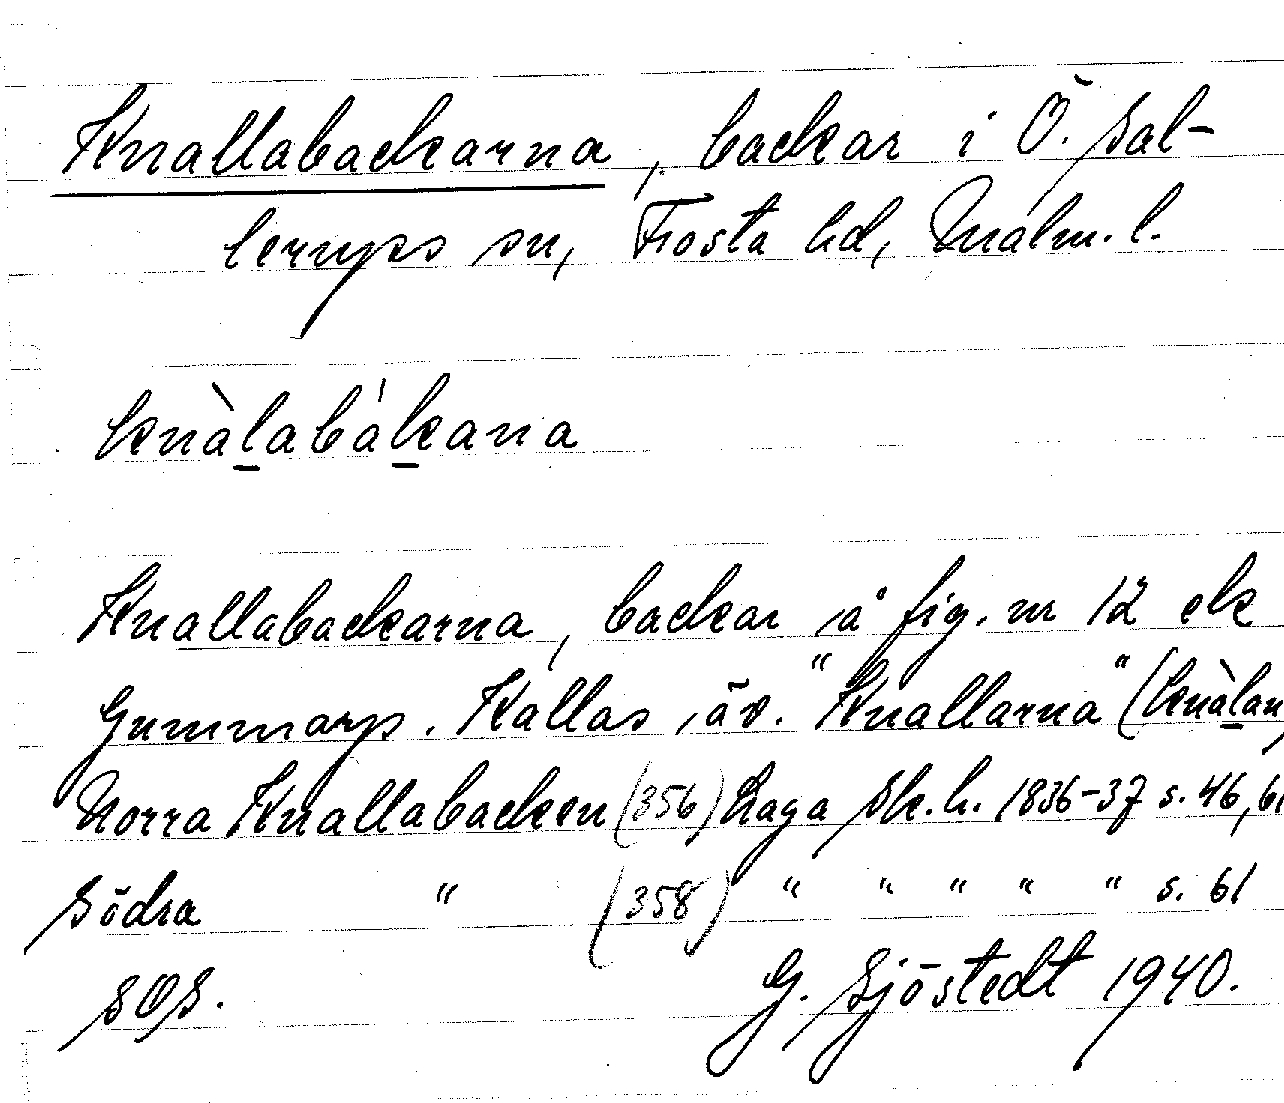 Knallabackarna, backar i Ö. Sal-
lerups sn, Frosta hd, Malm. l.
knàlabákana
Knallabackarna, backar å fig. nr 12 ek
Gummarp. Kallas äv. "Knallarna" (knàlan)
Norra Knallabacken (356) Laga Sk. h. 1836-37 s. 46, 61
Södra " (358) " " " " " s. 61
SOS. G. Sjöstedt 1940.